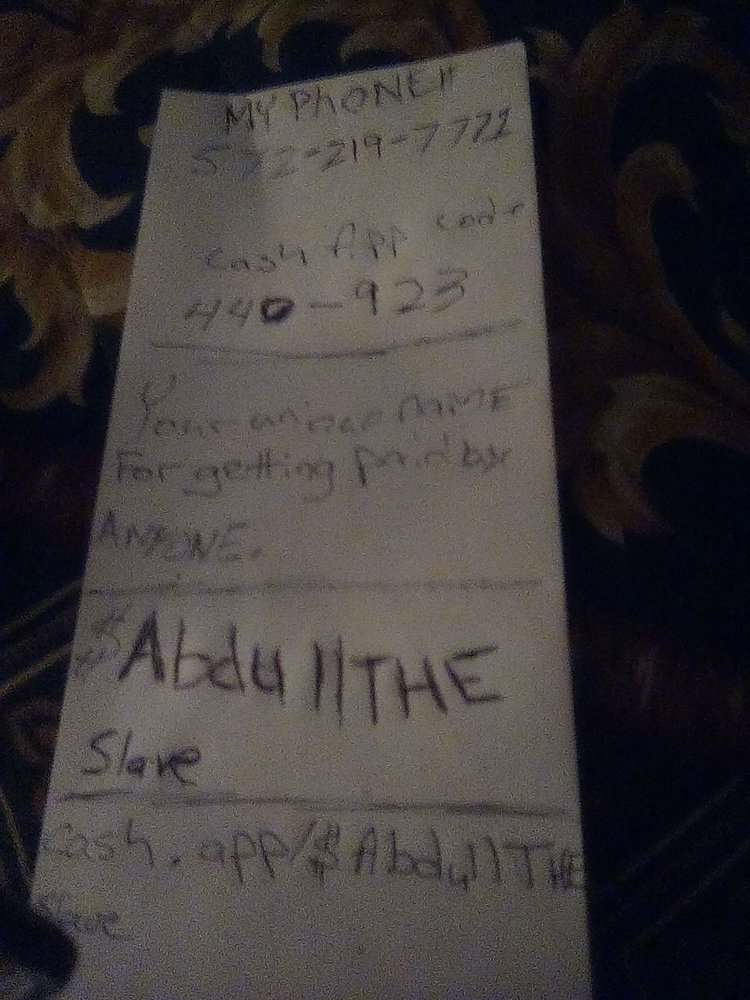 MY PHONE!!
572-219-7771
Cash App code
440-923
Your unique NAME
For getting Paid by
ANYONE.
$Abdu11THE
Slave
Cash.app/$Abdu11THE
Slave